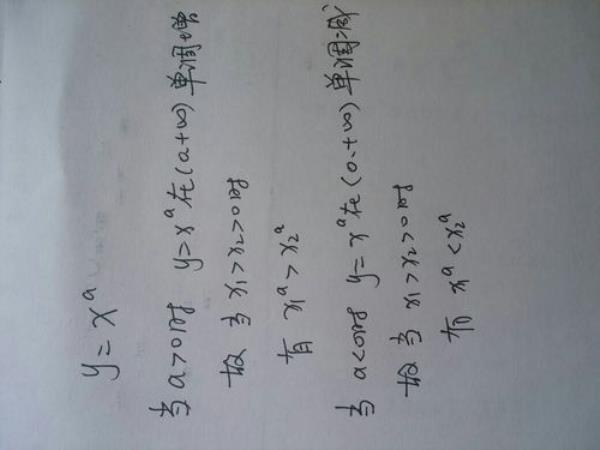 y=xᵃ
当a>0时 y=xᵃ在(a+∞)单调增
故当x₁>x₂>0时
有 x₁ᵃ>x₂ᵃ
当a<0时 y=xᵃ在(0.+∞)单调减
故当x₁>x₂>0时
有 x₁ᵃ<x₂ᵃ